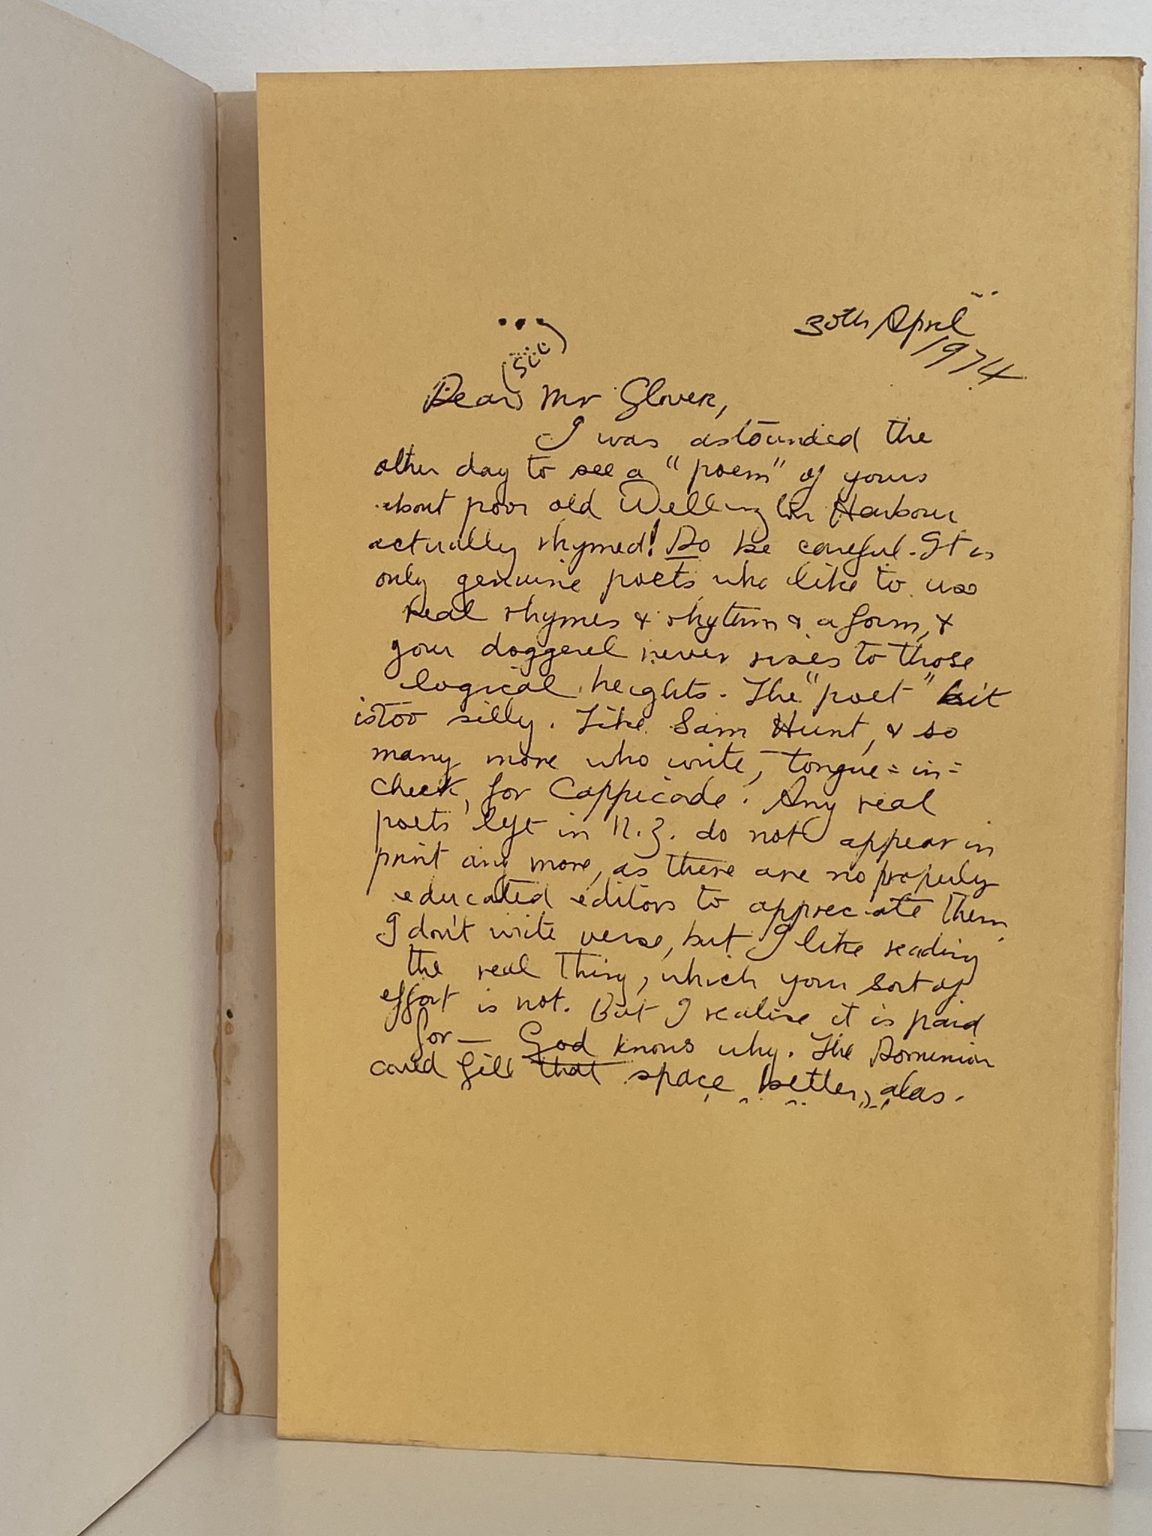 30th April
1974
(sic)
Dear Mr Glover,
I was astounded the
other day to see a "poem" of yours
about poor old Wellington Harbour
actually rhymed! Do be careful. It is
only genuine poets who like to use
real rhymes & rhythm & a form, &
your doggerel never rises to those
logical heights. The "poet" bit
is too silly. Like Sam Hunt, & so
many more who write, tongue=in=
cheek, for Cappicade. Any real
poets left in N.Z. do not appear in
print any more, as there are no properly
educated editors to appreciate them.
I don't write verse, but I like reading
the real thing, which your sort of
effort is not. But I realise it is paid
for — God knows why. The Dominion
could fill that space better, alas.